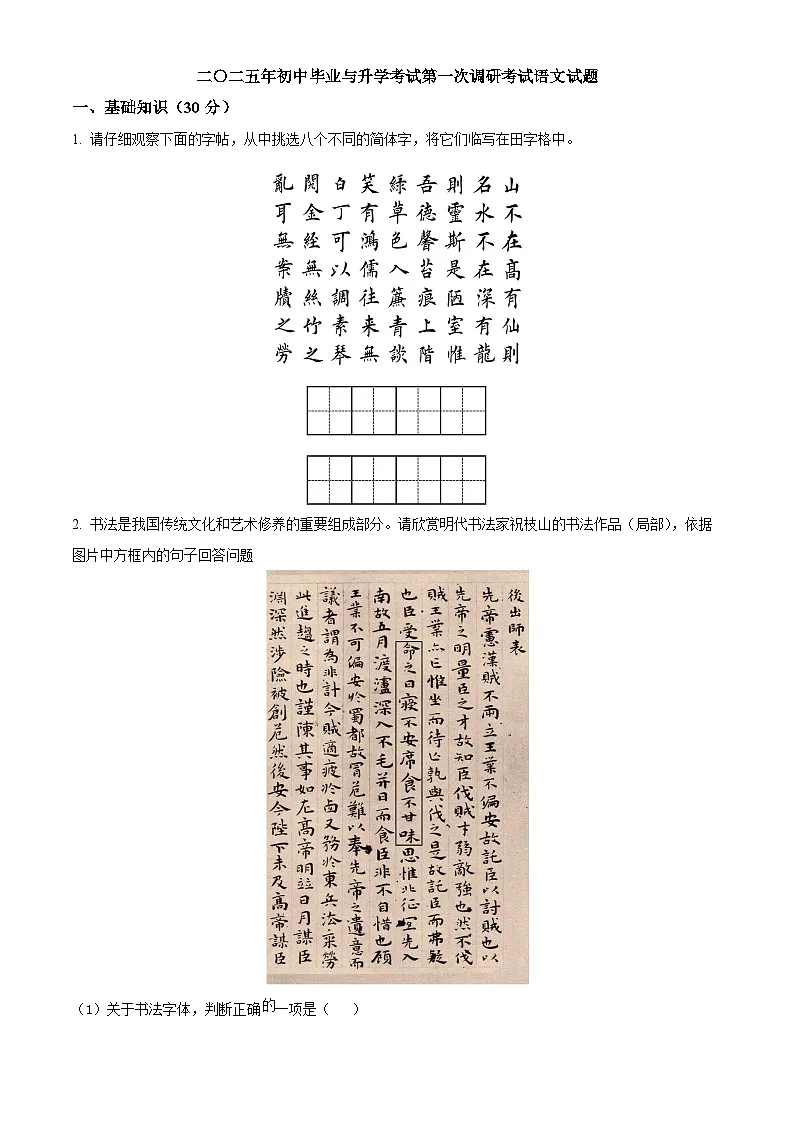 二〇二五年初中毕业与升学考试第一次调研考试语文试题
一、基础知识（30分）
1. 请仔细观察下面的字帖，从中挑选八个不同的简体字，将它们临写在田字格中。
山不在高有仙則
名水不在深有龍
則靈斯是陋室惟
吾德馨苔痕上階
綠草色入簾青談
笑有鴻儒往来無
白丁可以調素琴
閱金經無絲竹之
亂耳無案牘之勞
2. 书法是我国传统文化和艺术修养的重要组成部分。请欣赏明代书法家祝枝山的书法作品（局部），依据
图片中方框内的句子回答问题
後出師表
先帝慮漢賊不兩立王業不偏安故託臣以討賊也以
先帝之明量臣之才故知臣伐賊才弱敵強也然不伐
賊王業亦亡惟坐而待亡孰與伐之是故託臣而弗疑
也臣受命之日寢不安席食不甘味思惟北征宜先入
南故五月渡瀘深入不毛并日而食臣非不自惜也顧
王業不可偏安於蜀都故冒危難以奉先帝之遺意而
議者謂為非計今賊適疲於西又務於東兵法乘勞
此進趨之時也謹陳其事如左高帝明並日月謀臣
淵深然涉險被創危然後安今陛下未及高帝謀臣
（1）关于书法字体，判断正确的一项是（　　）